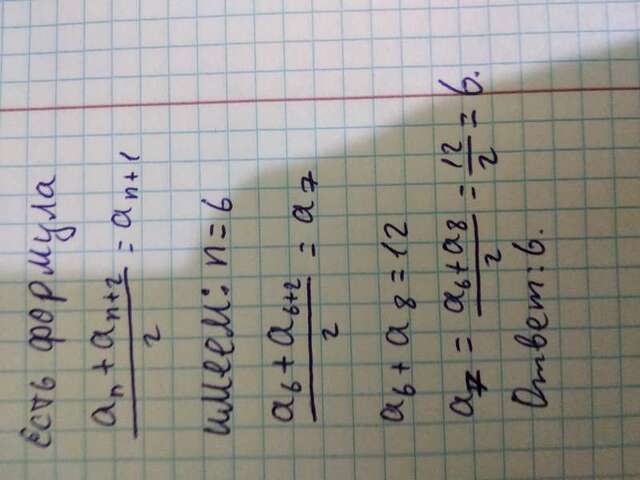 Есть формула
(aₙ + aₙ₊₂)/2 = aₙ₊₁
имеем: n = 6
(a₆ + a₆₊₂)/2 = a₇
a₆ + a₈ = 12
a₇ = (a₆ + a₈)/2 = 12/2 = 6.
Ответ: 6.